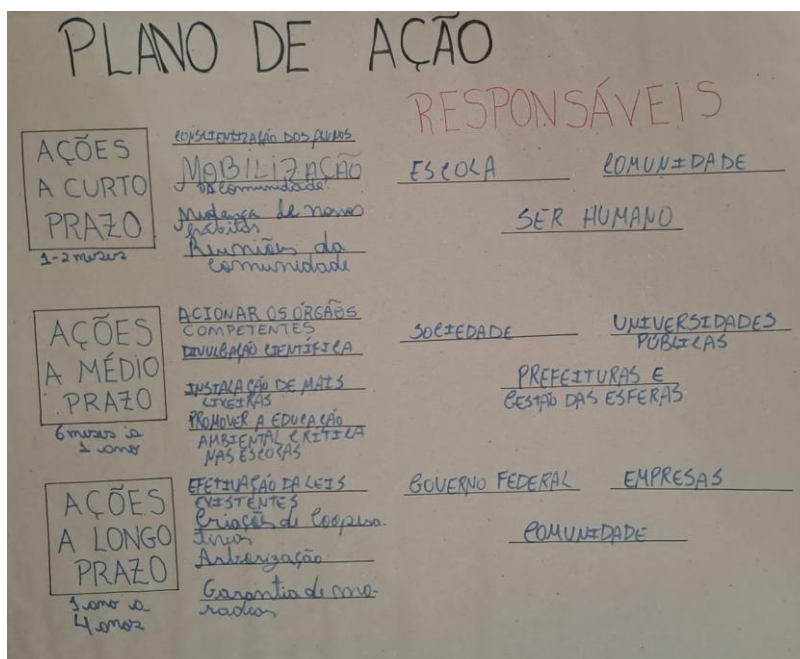 PLANO DE AÇÃO
RESPONSÁVEIS
AÇÕES
A CURTO
PRAZO
1-2 meses
CONSCIENTIZAÇÃO DOS ALUNOS
MOBILIZAÇÃO
da comunidade
Mudança de nossos
hábitos
Reuniões da
comunidade
ESCOLA
COMUNIDADE
SER HUMANO
AÇÕES
A MÉDIO
PRAZO
6 meses a
1 ano
ACIONAR OS ORGÃOS
COMPETENTES
DIVULGAÇÃO CIENTÍFICA
INSTALAÇÃO DE MAIS
LIXEIRAS
PROMOVER A EDUCAÇÃO
AMBIENTAL CRÍTICA
NAS ESCOLAS
SOCIEDADE
UNIVERSIDADES
PÚBLICAS
PREFEITURAS E
GESTÃO DAS ESFERAS
AÇÕES
A LONGO
PRAZO
1 ano a
4 anos
EFETIVAÇÃO DA LEIS
EXISTENTES
Criações de Coopera-
tivas
Arborização
Garantia de mo-
radias
GOVERNO FEDERAL
EMPRESAS
COMUNIDADE